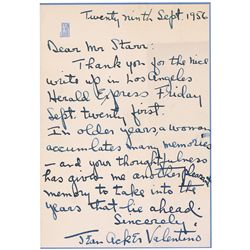 Twenty ninth Sept. 1956
Dear Mr Starr:
Thank you for the nice
write up in Los Angeles
Herald Express Friday
Sept. twenty first.
In older years a woman
accumulates many memories
- and your thoughtfulness
has given me another pleasant
memory to take into the
years that lie ahead.
Sincerely,
Jean Acker Valentino